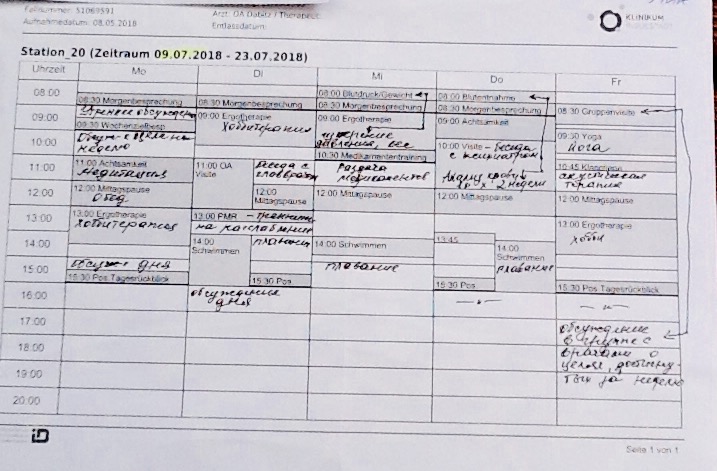 Fallnummer: 51069591
Aufnahmedatum: 08.05.2018
Arzt: OA
Therapeut:
Entlassdatum:
KLINIKUM
Station_20 (Zeitraum 09.07.2018 - 23.07.2018)
Uhrzeit Mo Di Mi Do Fr
08:00
08:00 Blutdruck/Gewicht
08:00 Blutentnahme
08:30 Morgenbesprechung
08:30 Morgenbesprechung
08:30 Morgenbesprechung
08:30 Morgenbesprechung
08:30 Gruppenvisite
09:00
09:00 Ergotherapie
хоббитерапия
09:00 Ergotherapie
измерение
давления, вес
09:00 Achtsamkeit
09:30
09:30 Yoga
йога
10:00
неделю
10:00 Visite - беседа
с психиатром
10:30 Medikamententraining
раздача
медикаментов
10:45
терапия
11:00
11:00 Achtsamkeit
медитация
11:00 OA
Visite
беседа с
главврачом
Анализ крови
2 недели
12:00
12:00 Mittagspause
обед
12:00
Mittagspause
12:00 Mittagspause
12:00 Mittagspause
12:00 Mittagspause
13:00
13:00 Ergotherapie
хоббитерапия
13:00 PMR -
на расслабление
13:00 Ergotherapie
хобби
13:45
14:00
14:00
Schwimmen
плавание
14:00 Schwimmen
плавание
14:00
Schwimmen
плавание
15:00
дня
15:30 Pos. Tagesrückblick
15:30 Pos.
15:30 Pos.
15:30 Pos. Tagesrückblick
16:00
обсуждение
дня
17:00
обсуждение
в группе с
врачами о
целях, достигну-
тых за неделю
18:00
19:00
20:00
iD
Seite 1 von 1